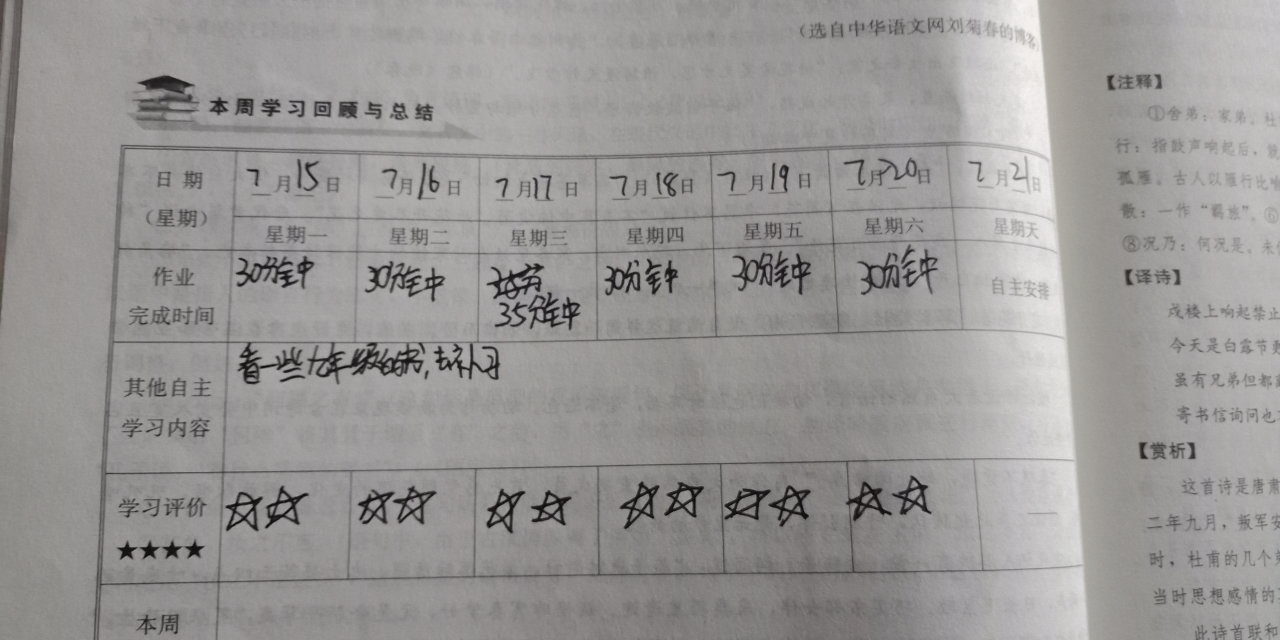 （选自中华语文网刘菊春的博客
本周学习回顾与总结
日期
（星期）
7月15日
7月16日
7月17日
7月18日
7月19日
7月20日
7月21日
星期一
星期二
星期三
星期四
星期五
星期六
星期天
作业
完成时间
30分全中
30分全中
35分全中
30分全中
30分全中
30分全中
自主安排
其他自主
学习内容
看一些七年级的书,去补习
学习评价
★★★★
☆☆
☆☆
☆☆
☆☆
☆☆
☆☆
本周
【注释】
①舍弟：家弟。杜
行：指鼓声响起后，
孤雁。古人以雁行比
散：一作“羁旅”。
⑧况乃：何况是。未
【译诗】
戍楼上响起禁止
今天是白露节
虽有兄弟但都
寄书信询问也
【赏析】
这首诗是唐肃
二年九月，叛军安
时，杜甫的几个
当时思想感情的
此诗首联和